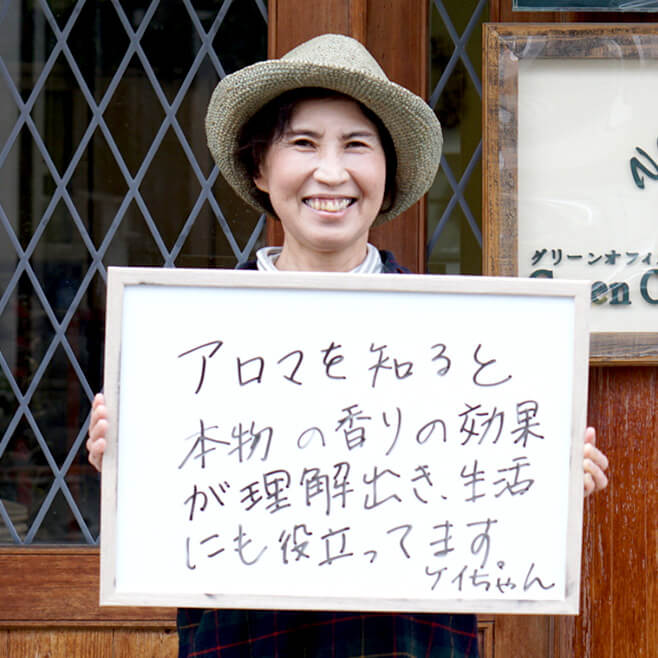 アロマを知ると
本物の香りの効果
が理解出き、生活
にも役立ってます
ケイちゃん
グリーンオフィ
Green